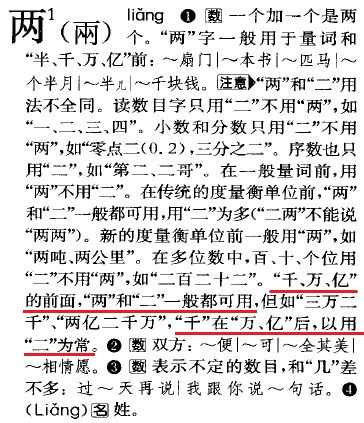 两¹(兩) liǎng ❶ 数 一个加一个是两
个。“两”字一般用于量词和
“半、千、万、亿”前：～扇门|～本书|～匹马|～
个半月|～半儿|～千块钱。注意“两”和“二”用
法不全同。读数目字只用“二”不用“两”，如
“一、二、三、四”。小数和分数只用“二”不用
“两”，如“零点二(0.2)，三分之二”。序数也只
用“二”，如“第二、二哥”。在一般量词前，用
“两”不用“二”。在传统的度量衡单位前，“两”
和“二”一般都可用，用“二”为多(“二两”不能说
“两两”)。新的度量衡单位前一般用“两”，如
“两吨、两公里”。在多位数中，百、十、个位用
“二”不用“两”，如“二百二十二”。“千、万、亿”
的前面，“两”和“二”一般都可用，但如“三万二
千”、“两亿二千万”，“千”在“万、亿”后，以用
“二”为常。❷ 数 双方：～便|～可|～全其美|
～相情愿。❸ 数 表示不定的数目，和“几”差
不多：过～天再说|我跟你说～句话。❹
(Liǎng) 名 姓。